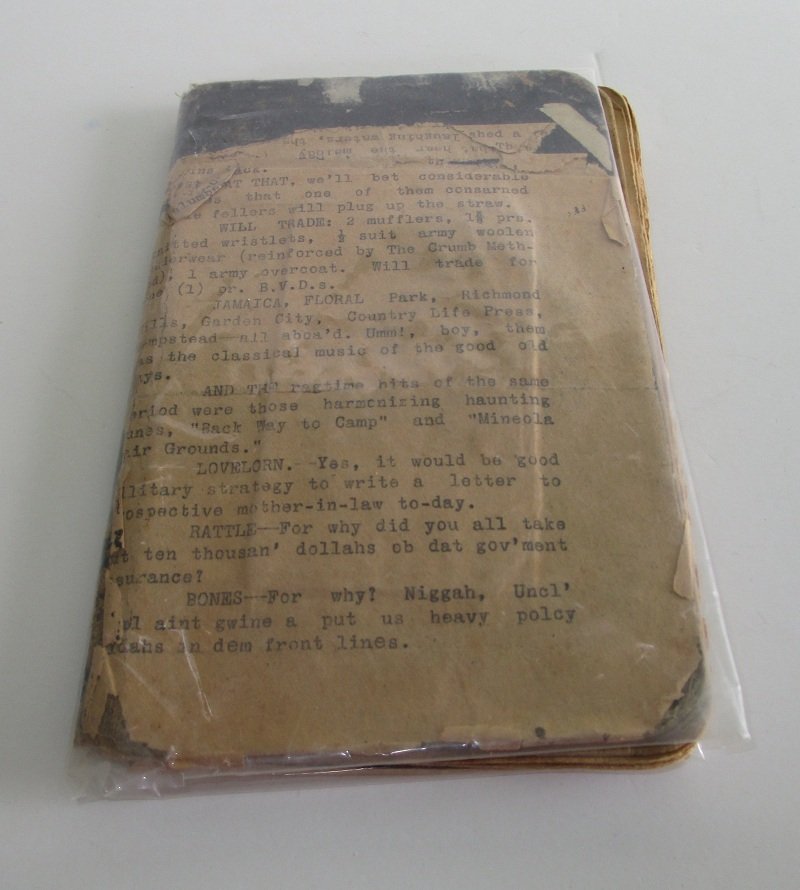 a
AT THAT, we'll bet considerable
that one of them consarned
fellers will plug up the straw.
WILL TRADE: 2 mufflers, 1½ prs.
itted wristlets, ½ suit army woolen
erwear (reinforced by The Crumb Meth-
d), 1 army overcoat. Will trade for
(1) pr. B.V.D.s.
JAMAICA, FLORAL Park, Richmond
lls, Garden City, Country Life Press,
empstead--all aboa'd. Umm!, boy, them
as the classical music of the good old
ays.
AND THE ragtime hits of the same
eriod were those harmonizing haunting
unes, "Back Way to Camp" and "Mineola
air Grounds."
LOVELORN.--Yes, it would be good
ilitary strategy to write a letter to
ospective mother-in-law to-day.
RATTLE--For why did you all take
ut ten thousan' dollahs ob dat gov'ment
surance?
BONES--For why? Niggah, Uncl'
aint gwine a put us heavy polcy
dahs in dem front lines.